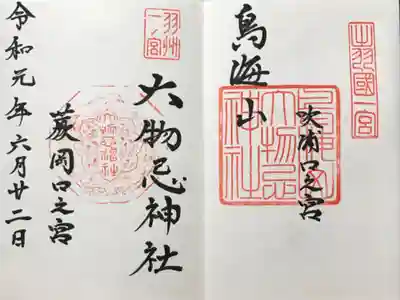 出羽國一宮
鳥海山
吹浦口之宮
羽州
一ノ宮
大物忌神社
蕨岡口之宮
令和元年六月廿二日